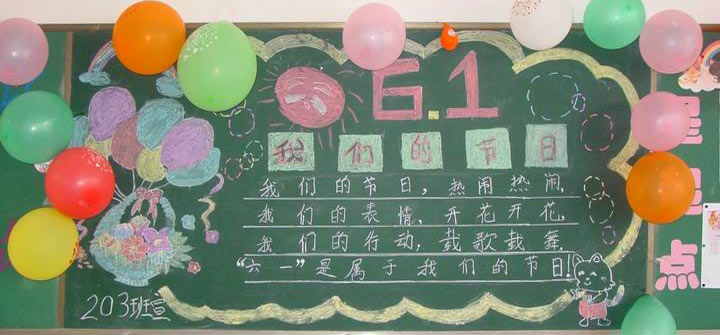 6.1
我们的节日
我们的节日，热闹热闹，
我们的表情，开花开花，
我们的行动，载歌载舞，
“六一”是属于我们的节日!
203班宣
点